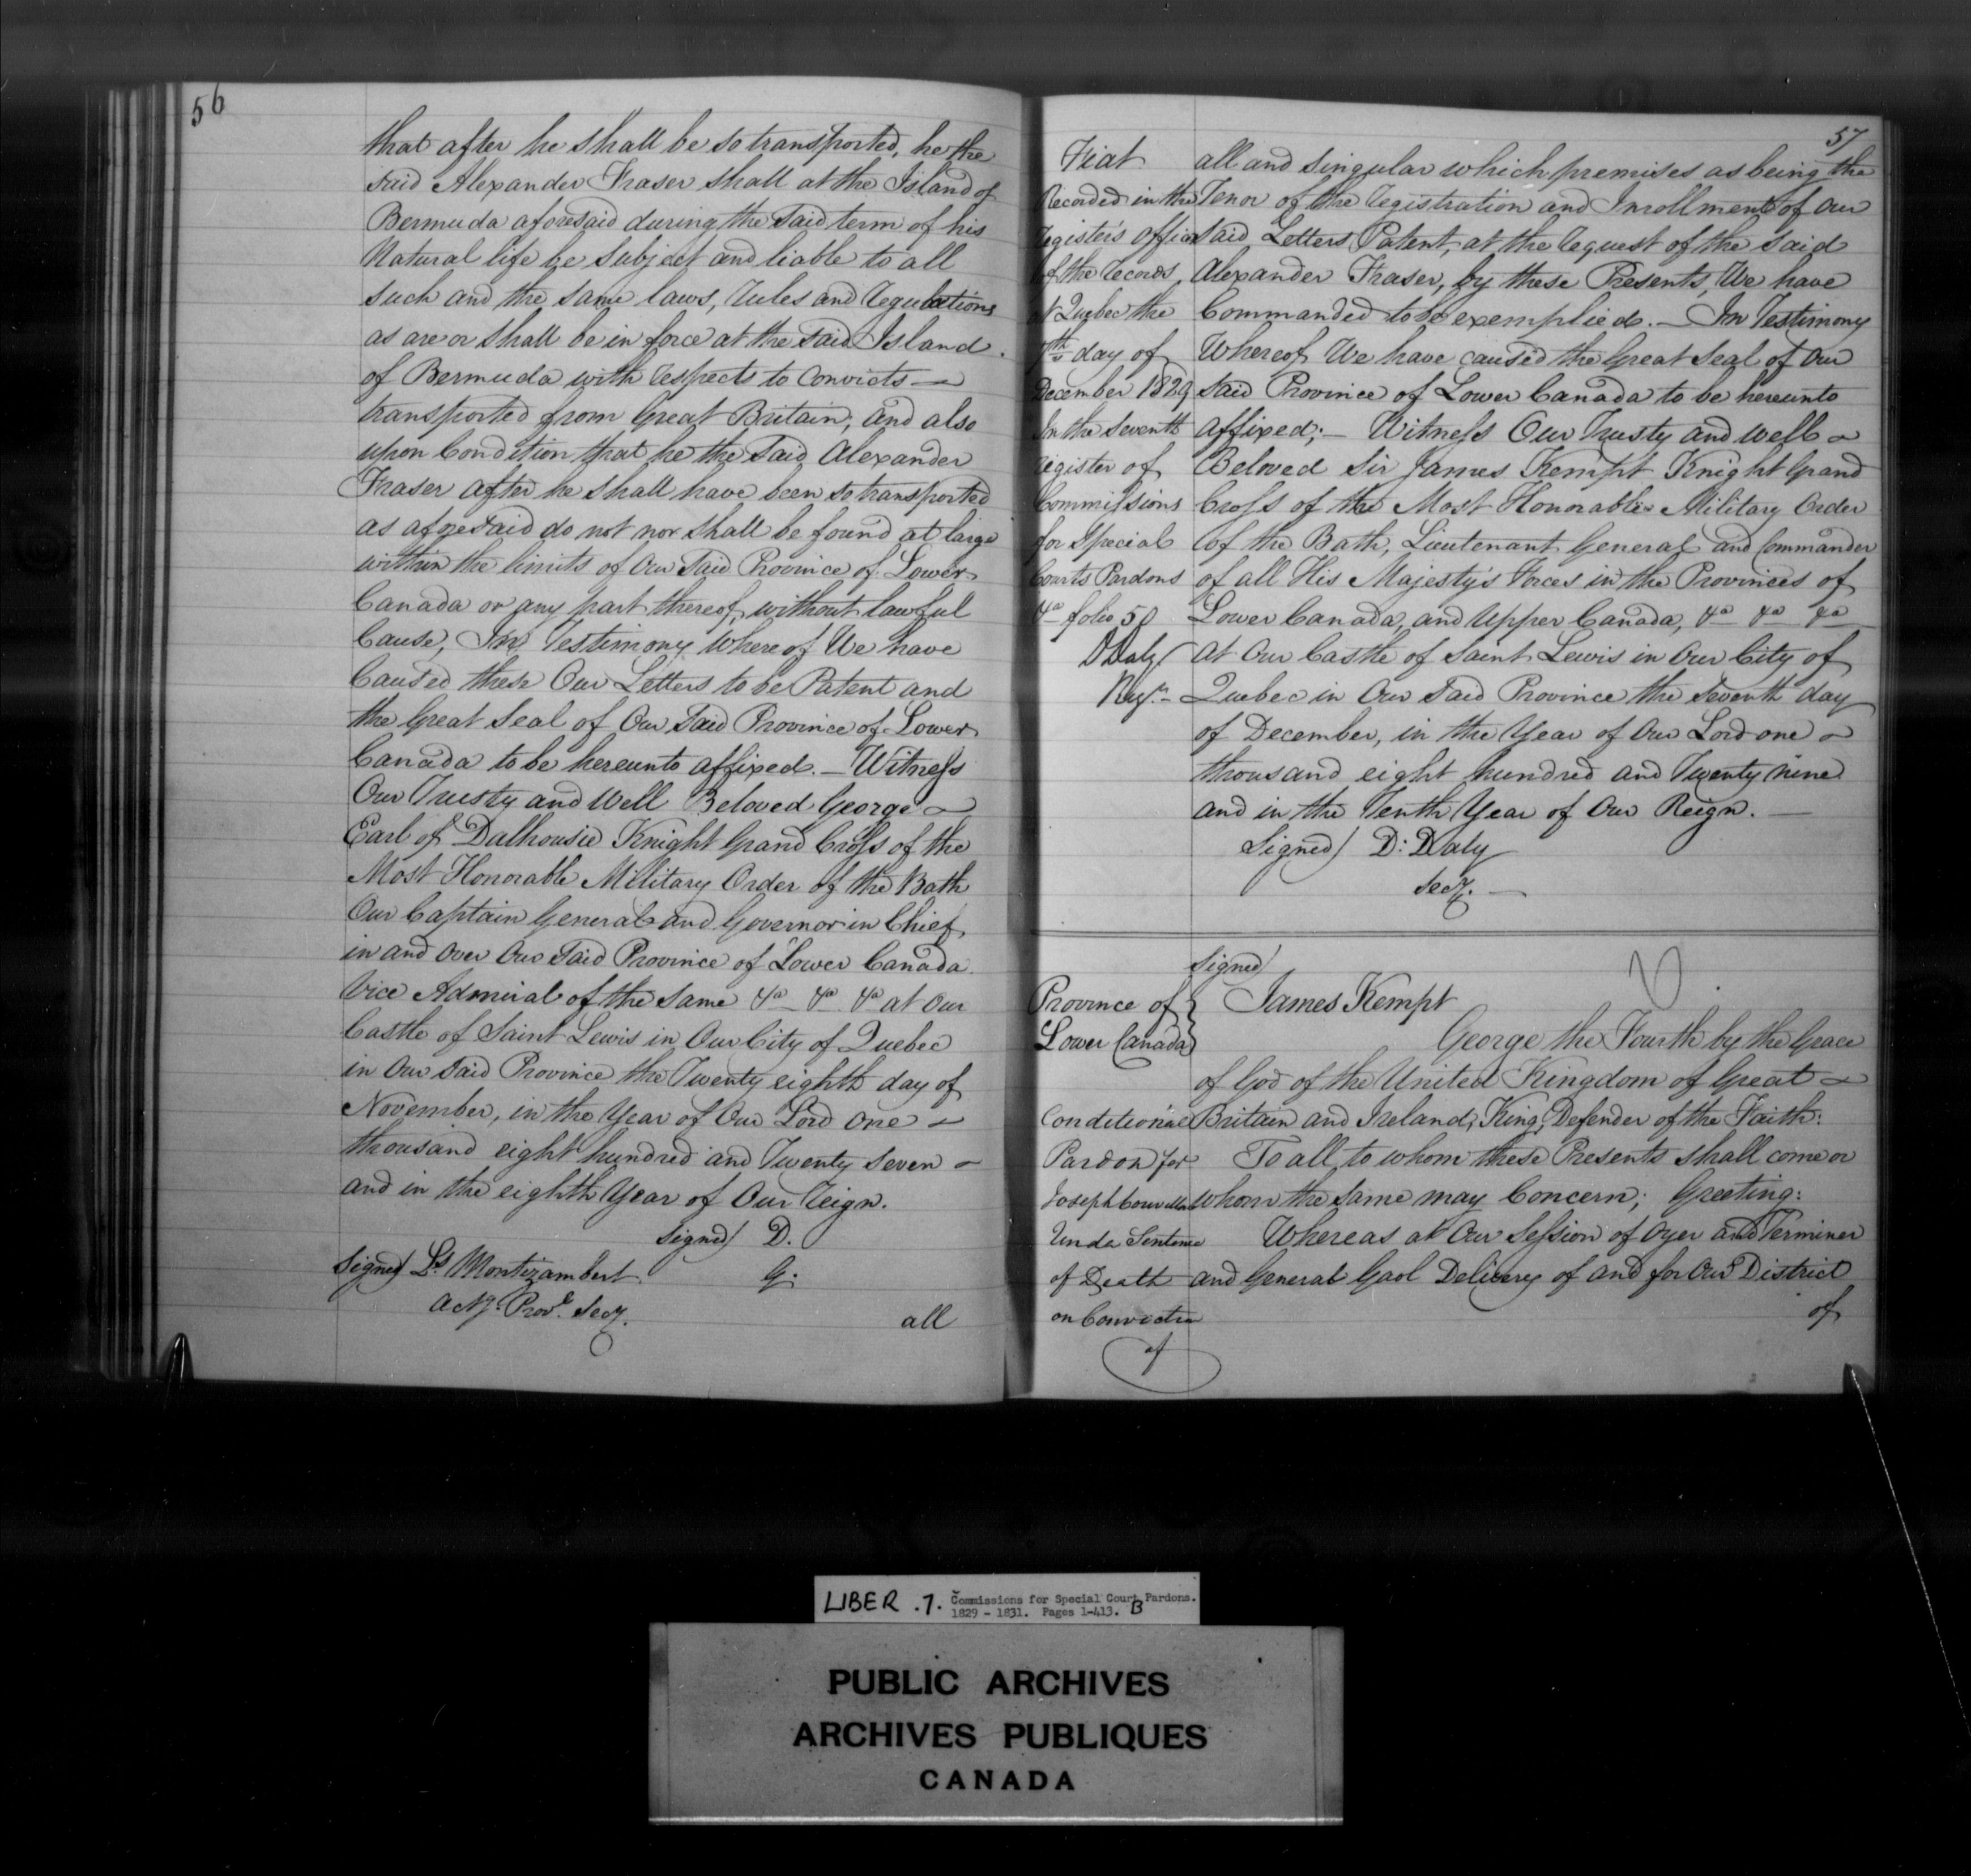 56
that after he shall be so transported, he the
said Alexander Fraser shall at the Island of
Bermuda aforesaid during the said term of his
Natural life be subject and liable to all
such and the same laws, rules and regulations
as are or shall be in force at the said Island
of Bermuda with respects to Convicts —
transported from Great Britain, and also
upon Condition that he the said Alexander
Fraser after he shall have been so transported
as aforesaid do not nor shall be found at large
within the limits of Our said Province of Lower
Canada or any part thereof, without lawful
Cause, In Testimony Whereof We have
Caused these Our Letters to be Patent and
the Great Seal of Our said Province of Lower
Canada to be hereunto affixed. — Witness
Our Trusty and Well Beloved George
Earl of Dalhousie Knight Grand Cross of the
Most Honorable Military Order of the Bath
Our Captain General and Governor in Chief
in and over Our said Province of Lower Canada
Vice Admiral of the same &a &a &a at Our
Castle of Saint Lewis in Our City of Quebec
in Our said Province the Twenty eighth day of
November, in the Year of Our Lord One
thousand eight hundred and Twenty seven
and in the eighth Year of Our Reign.
Signed/ D.
Signed/ Ls. Montizambert G.
Actg. Provl. Secy.
all
57
Fiat
Recorded in the
Register's Office
of the Records
at Quebec the
7th day of
December 1829
In the seventh
register of
Commissions
for Special
Courts Pardons
&a folio 50
D Daly
Regr.
all and singular which premises as being the
Tenor of the Registration and Inrollment of Our
said Letters Patent, at the request of the said
Alexander Fraser, by these Presents, We have
Commanded to be exemplied. — In Testimony
Whereof We have caused the Great Seal of Our
said Province of Lower Canada to be hereunto
affixed; — Witness Our Trusty and well
Beloved Sir James Kempt Knight Grand
Cross of the Most Honorable Military Order
of the Bath, Lieutenant General and Commander
of all His Majesty's Forces in the Provinces of
Lower Canada, and Upper Canada, &a &a &a
At Our Castle of Saint Lewis in Our City of
Quebec in Our said Province the seventh day
of December, in the Year of Our Lord one
thousand eight hundred and Twenty nine
and in the Tenth Year of Our Reign. —
Signed/ D: Daly
Secy. —
Province of
Lower Canada
Signed/
James Kempt
Conditional
Pardon for
Joseph
Under Sentence
of Death
on Conviction
of
George the Fourth by the Grace
of God of the United Kingdom of Great
Britain and Ireland, King, Defender of the Faith:
To all to whom these Presents shall come or
whom the same may Concern; Greeting:
Whereas at Our Session of Oyer and Terminer
and General Gaol Delivery of and for Our District
of
LIBER .7. Commissions for Special Court Pardons.
1829 - 1831. Pages 1-413. B
PUBLIC ARCHIVES
ARCHIVES PUBLIQUES
CANADA